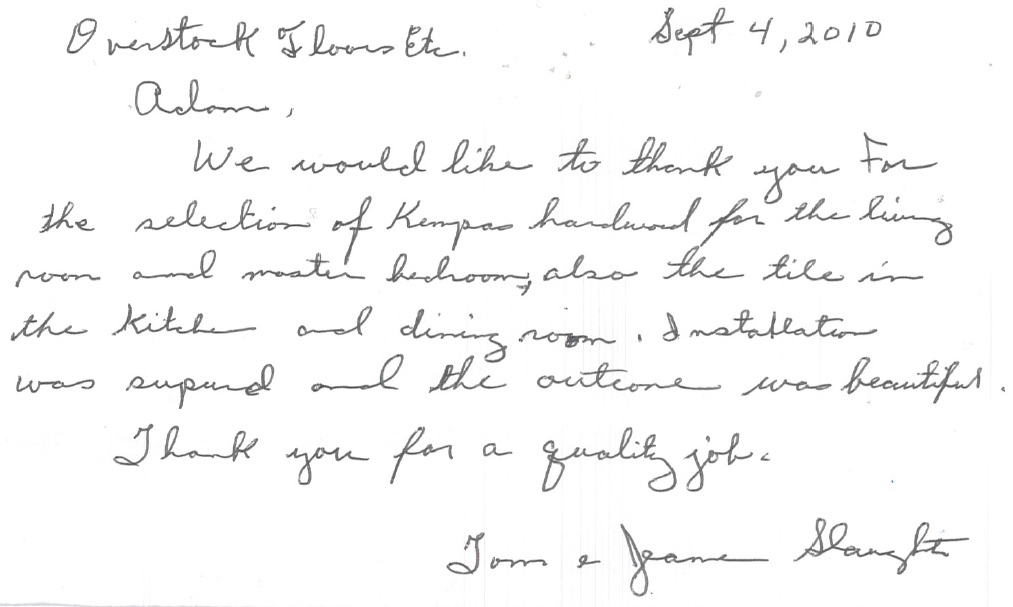 Overstock Floors Etc. Sept 4, 2010
Adam,
We would like to thank you For
the selection of Kempas hardwood for the living
room and master bedroom, also the tile in
the kitchen and dining room. Installation
was and the outcome was beautiful.
Thank you for a quality job.
Tom & Jeanne Slaughter